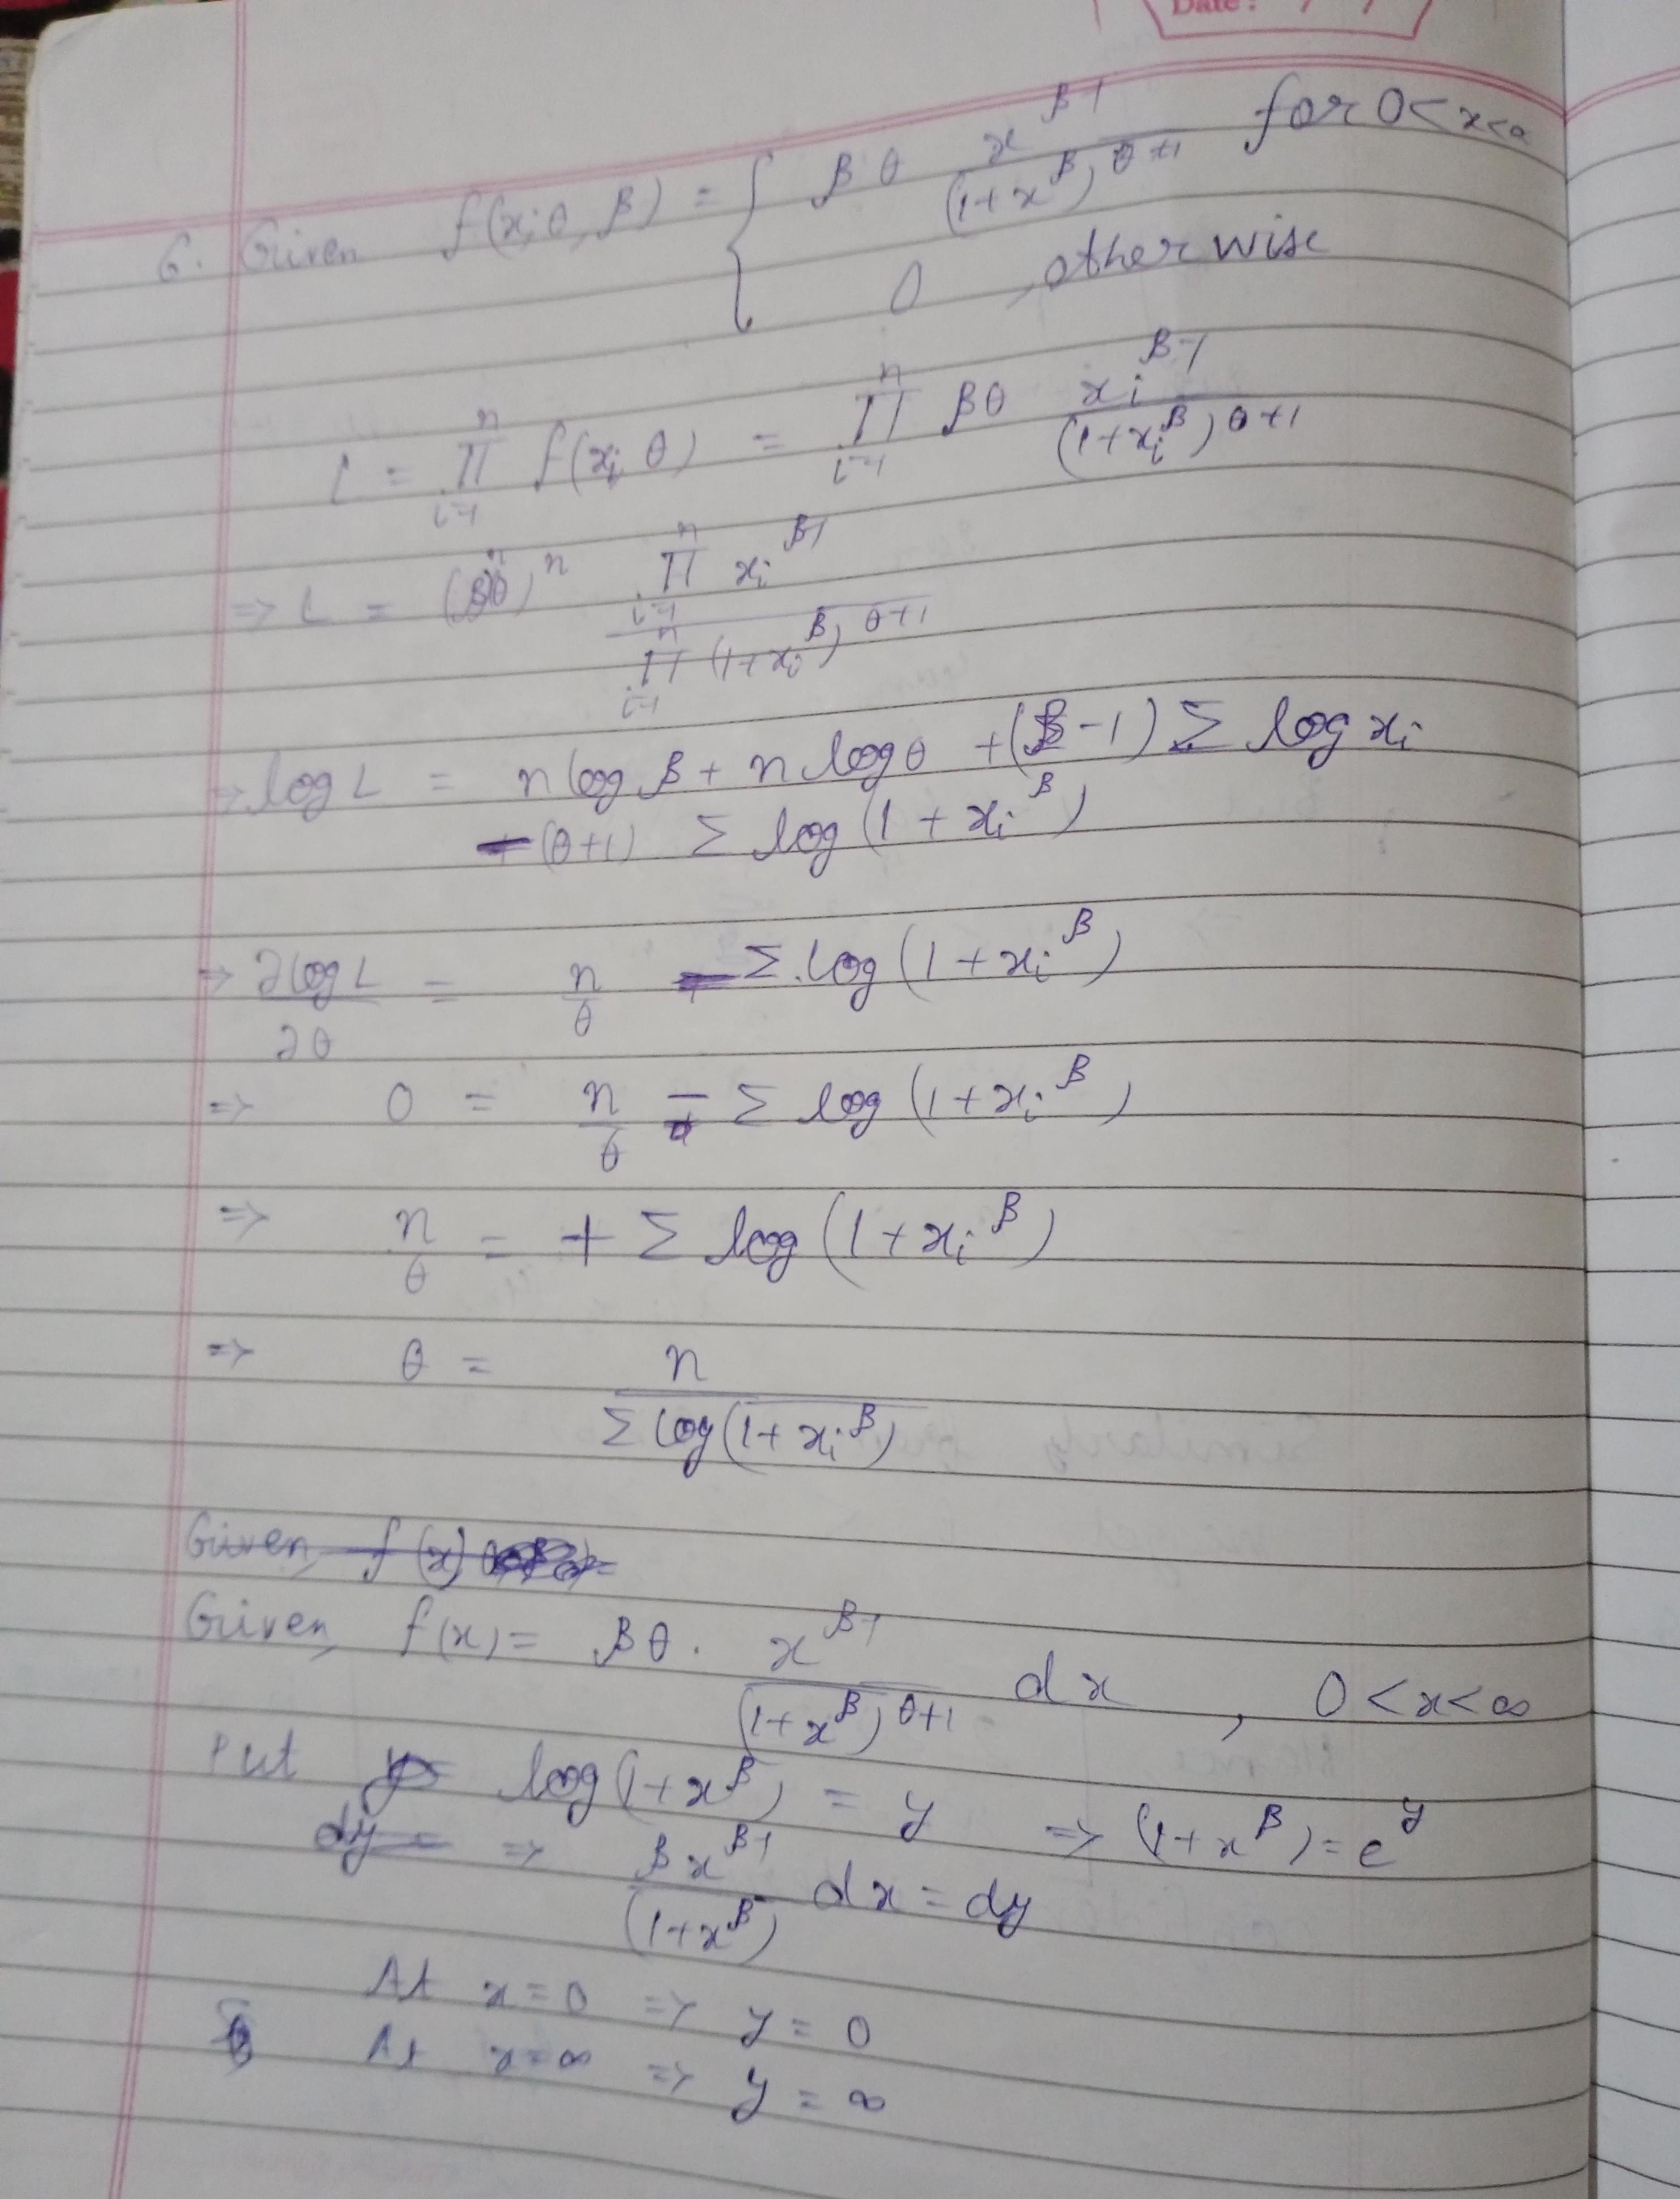 Date: / /
6. Given f(x; θ, β) = { βθ x^(β-1) / (1+x^β)^(θ+1) for 0 < x < ∞
0 , otherwise
L = ∏_(i=1)^n f(x_i, θ) = ∏_(i=1)^n βθ x_i^(β-1) / (1+x_i^β)^(θ+1)
⇒ L = (βθ)^n ∏_(i=1)^n x_i^(β-1) / ∏_(i=1)^n (1+x_i^β)^(θ+1)
⇒ log L = n log β + n log θ + (β-1) Σ log x_i
- (θ+1) Σ log (1 + x_i^β)
⇒ ∂ log L / ∂θ = n/θ - Σ log (1 + x_i^β)
⇒ 0 = n/θ - Σ log (1 + x_i^β)
⇒ n/θ = + Σ log (1 + x_i^β)
⇒ θ = n / Σ log (1 + x_i^β)
Given, f(x)
Given, f(x) = βθ . x^(β-1) / (1+x^β)^(θ+1) dx , 0 < x < ∞
Put log (1+x^β) = y ⇒ (1+x^β) = e^y
dy = ⇒ β x^(β-1) / (1+x^β) dx = dy
At x = 0 ⇒ y = 0
At x = ∞ ⇒ y = ∞